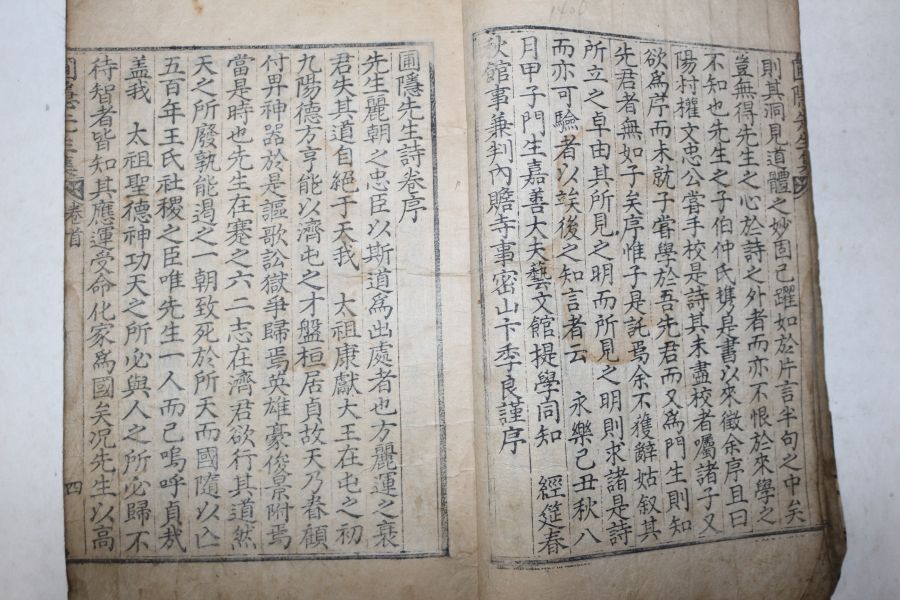 則其洞見道體之妙固已躍如於片言半句之中矣
豈無得先生之心於詩之外者而亦不恨於來學之
不知也先生之子伯仲氏携是書以來徵余序且曰
陽村權文忠公嘗手校是詩其未盡校者囑諸子又
欲爲序而未就子嘗學於吾先君而又爲門生則知
先君者無如子矣序惟子是託焉余不獲辭姑叙其
所立之卓由其所見之明而所見之明則求諸是詩
而亦可驗者以竢後之知言者云 永樂己丑秋八
月甲子門生嘉善大夫藝文館提學同知 經筵春
秋館事兼判內贍寺事密山卞季良謹序
圃隱先生詩卷序
先生麗朝之忠臣以斯道爲出處者也方麗運之衰
君失其道自絕于天我 太祖康獻大王在屯之初
九陽德方亨能以濟屯之才盤桓居貞故天乃眷顧
付畀神器於是謳歌訟獄爭歸焉英雄豪俊景附焉
當是時也先生在蹇之六二志在濟君欲行其道然
天之所廢孰能遏之一朝致死於所天而國隨以亡
五百年王氏社稷之臣唯先生一人而已嗚呼貞哉
盖我 太祖聖德神功天之所必與人之所必歸不
待智者皆知其應運受命化家爲國矣况先生以高
卷首
四